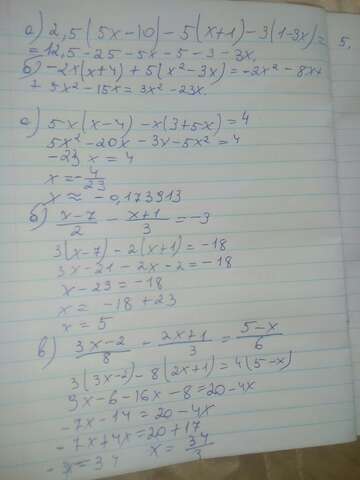 а) 2,5(5x-10)-5(x+1)-3(1-3x)=
=12,5-25-5x-5-3-3x.
б) -2x(x+4)+5(x²-3x)=-2x²-8x+
+5x²-15x=3x²-23x.
5,
а) 5x(x-4)-x(3+5x)=4
5x²-20x-3x-5x²=4
-23x=4
x=-4/23
x≈-0,173913
б) (x-7)/2-(x+1)/3=-3
3(x-7)-2(x+1)=-18
3x-21-2x-2=-18
x-23=-18
x=-18+23
x=5
в) (3x-2)/8-(2x+1)/3=(5-x)/6
3(3x-2)-8(2x+1)=4(5-x)
9x-6-16x-8=20-4x
-7x-14=20-4x
-7x+4x=20+17
-x=34 x=34/3